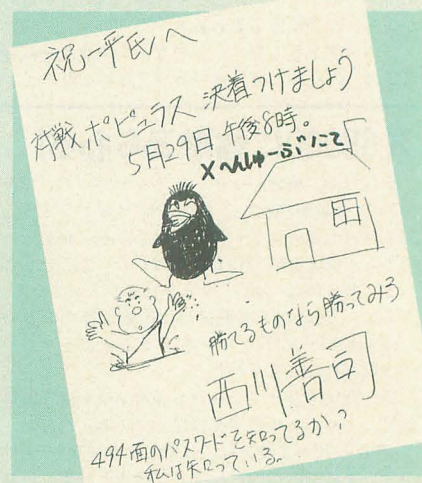 祝一平氏へ
対戦ポピュラス 決着つけましょう
5月29日 午後8時。
Xへんしゅーぶにて
勝てるものなら勝ってみろ
西川善司
494面のパスワードを知ってるか?
私は知っている。